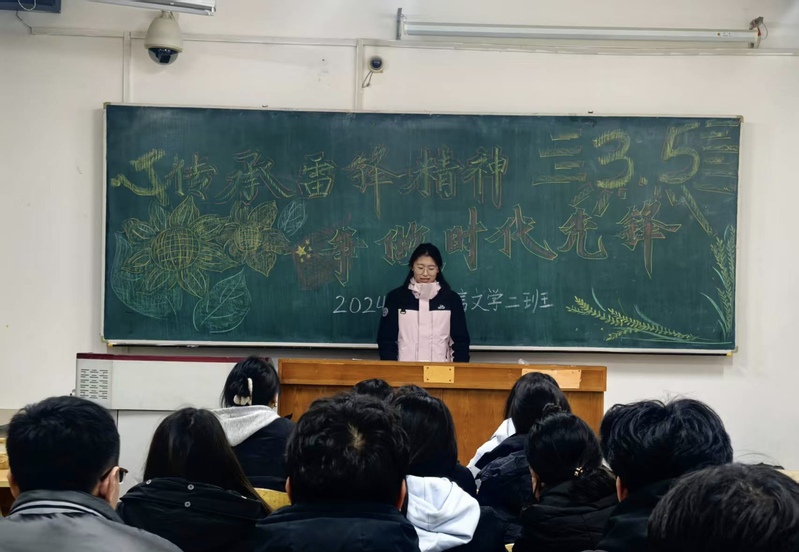 传承雷锋精神 3.5
争做时代先锋
2024 言文学二班